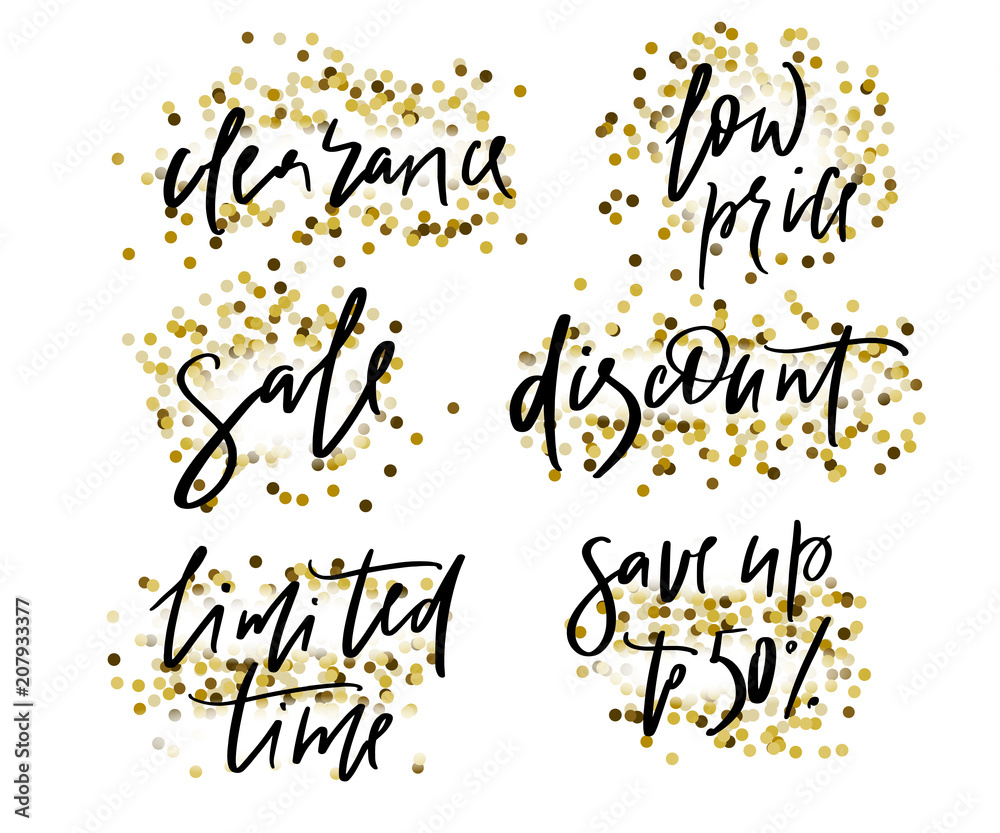 clearance
low
price
sale
discount
limited
time
save up
to 50%
Adobe Stock | #207933377